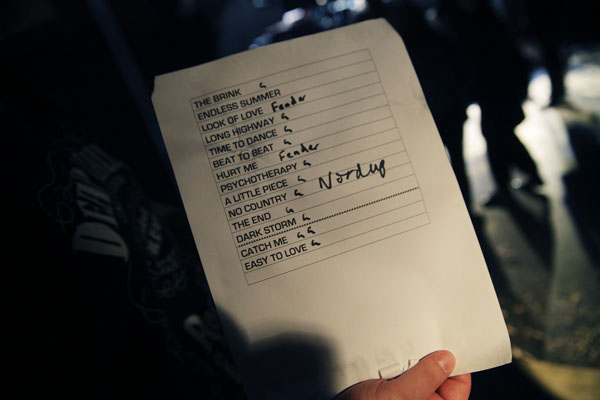 THE BRINK G
ENDLESS SUMMER
LOOK OF LOVE Fender
LONG HIGHWAY G
TIME TO DANCE G
BEAT TO BEAT G
HURT ME Fender
PSYCHOTHERAPY G
A LITTLE PIECE G
NO COUNTRY G Nordup
THE END G
DARK STORM G
CATCH ME G G
EASY TO LOVE G